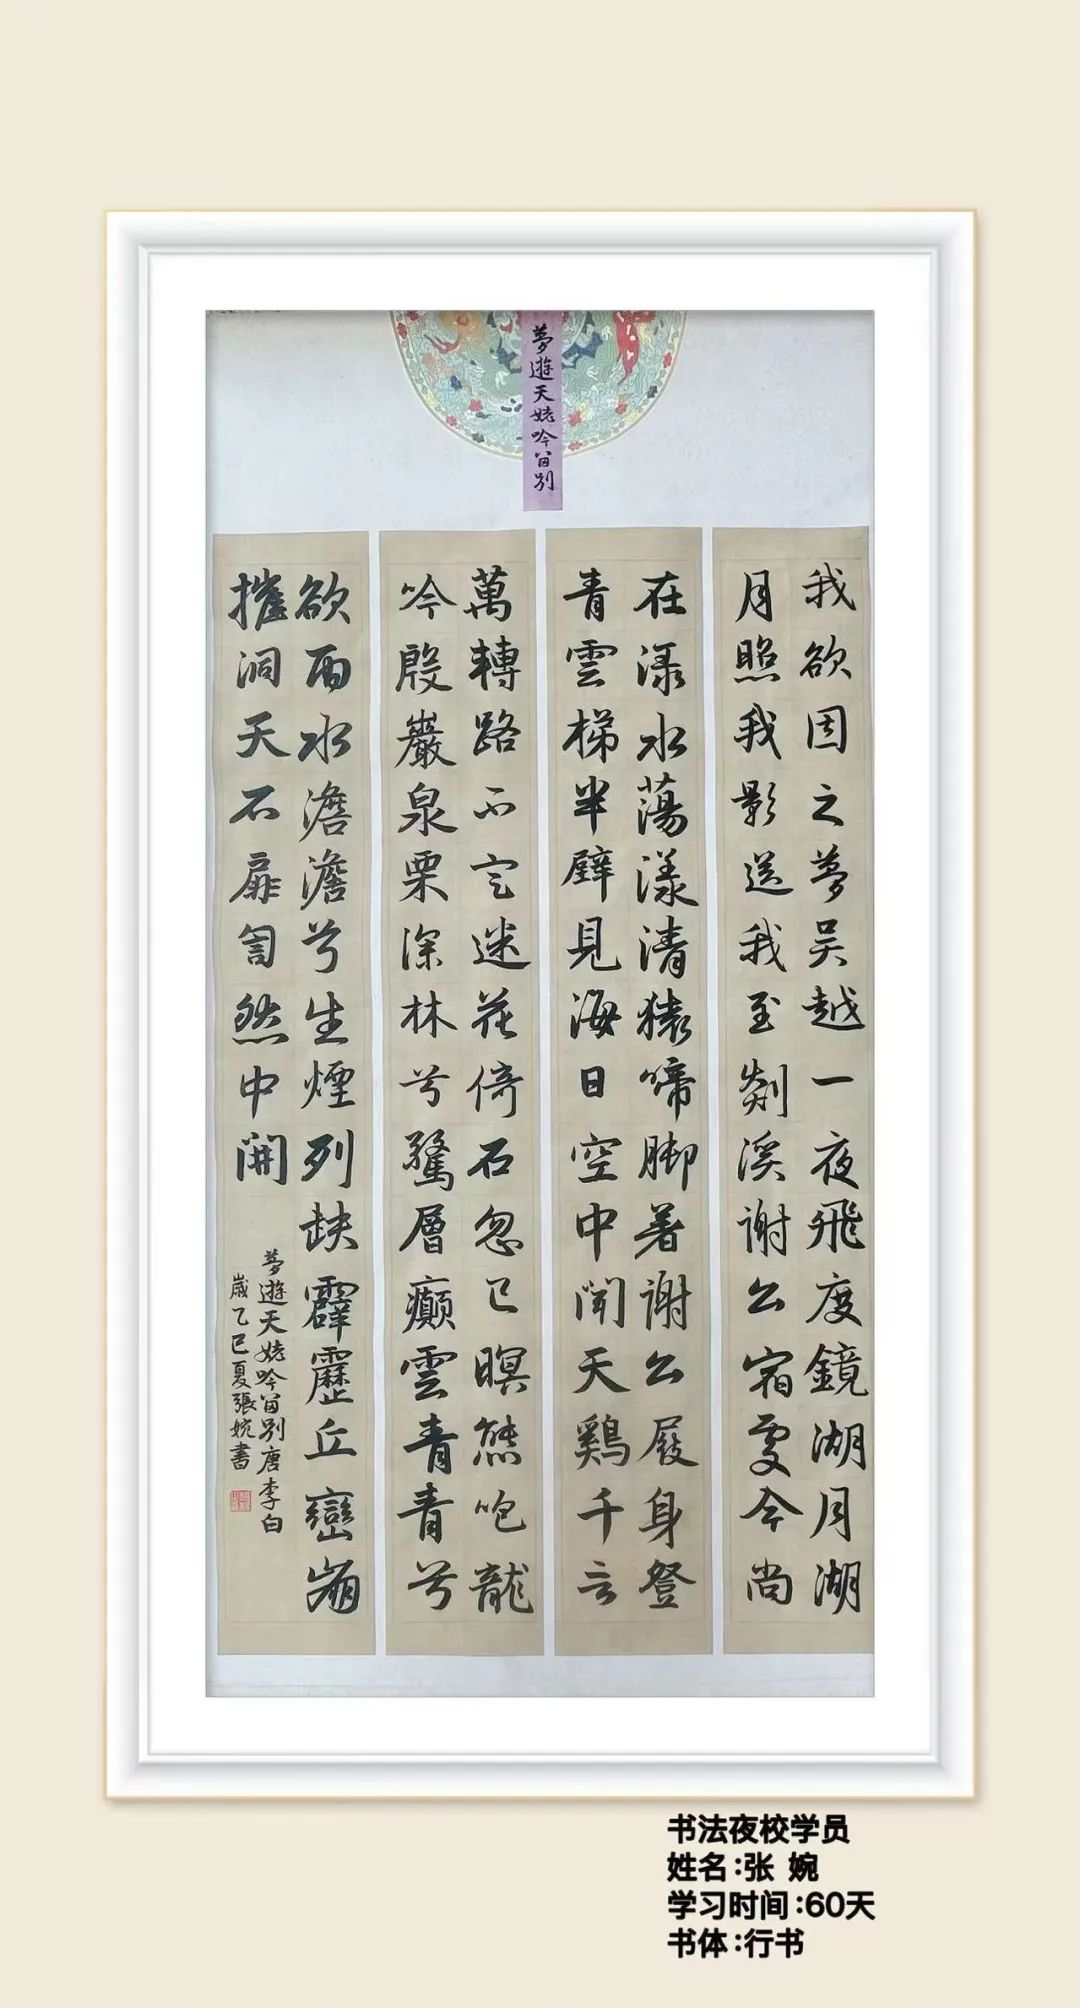 夢遊天姥吟留別
我欲因之夢吴越一夜飛度鏡湖月湖
月照我影送我至剡溪謝公宿處今尚
在渌水蕩漾清猿啼脚著謝公屐身登
青雲梯半壁見海日空中聞天鷄千言
萬轉路不定迷花倚石忽已暝熊咆龍
吟殷巖泉栗深林兮驚層巔雲青青兮
欲雨水澹澹兮生煙列缺霹靂丘巒崩
摧洞天石扉訇然中開
夢遊天姥吟留別唐李白
歲乙巳夏張婉書
书法夜校学员
姓名:张 婉
学习时间:60天
书体:行书